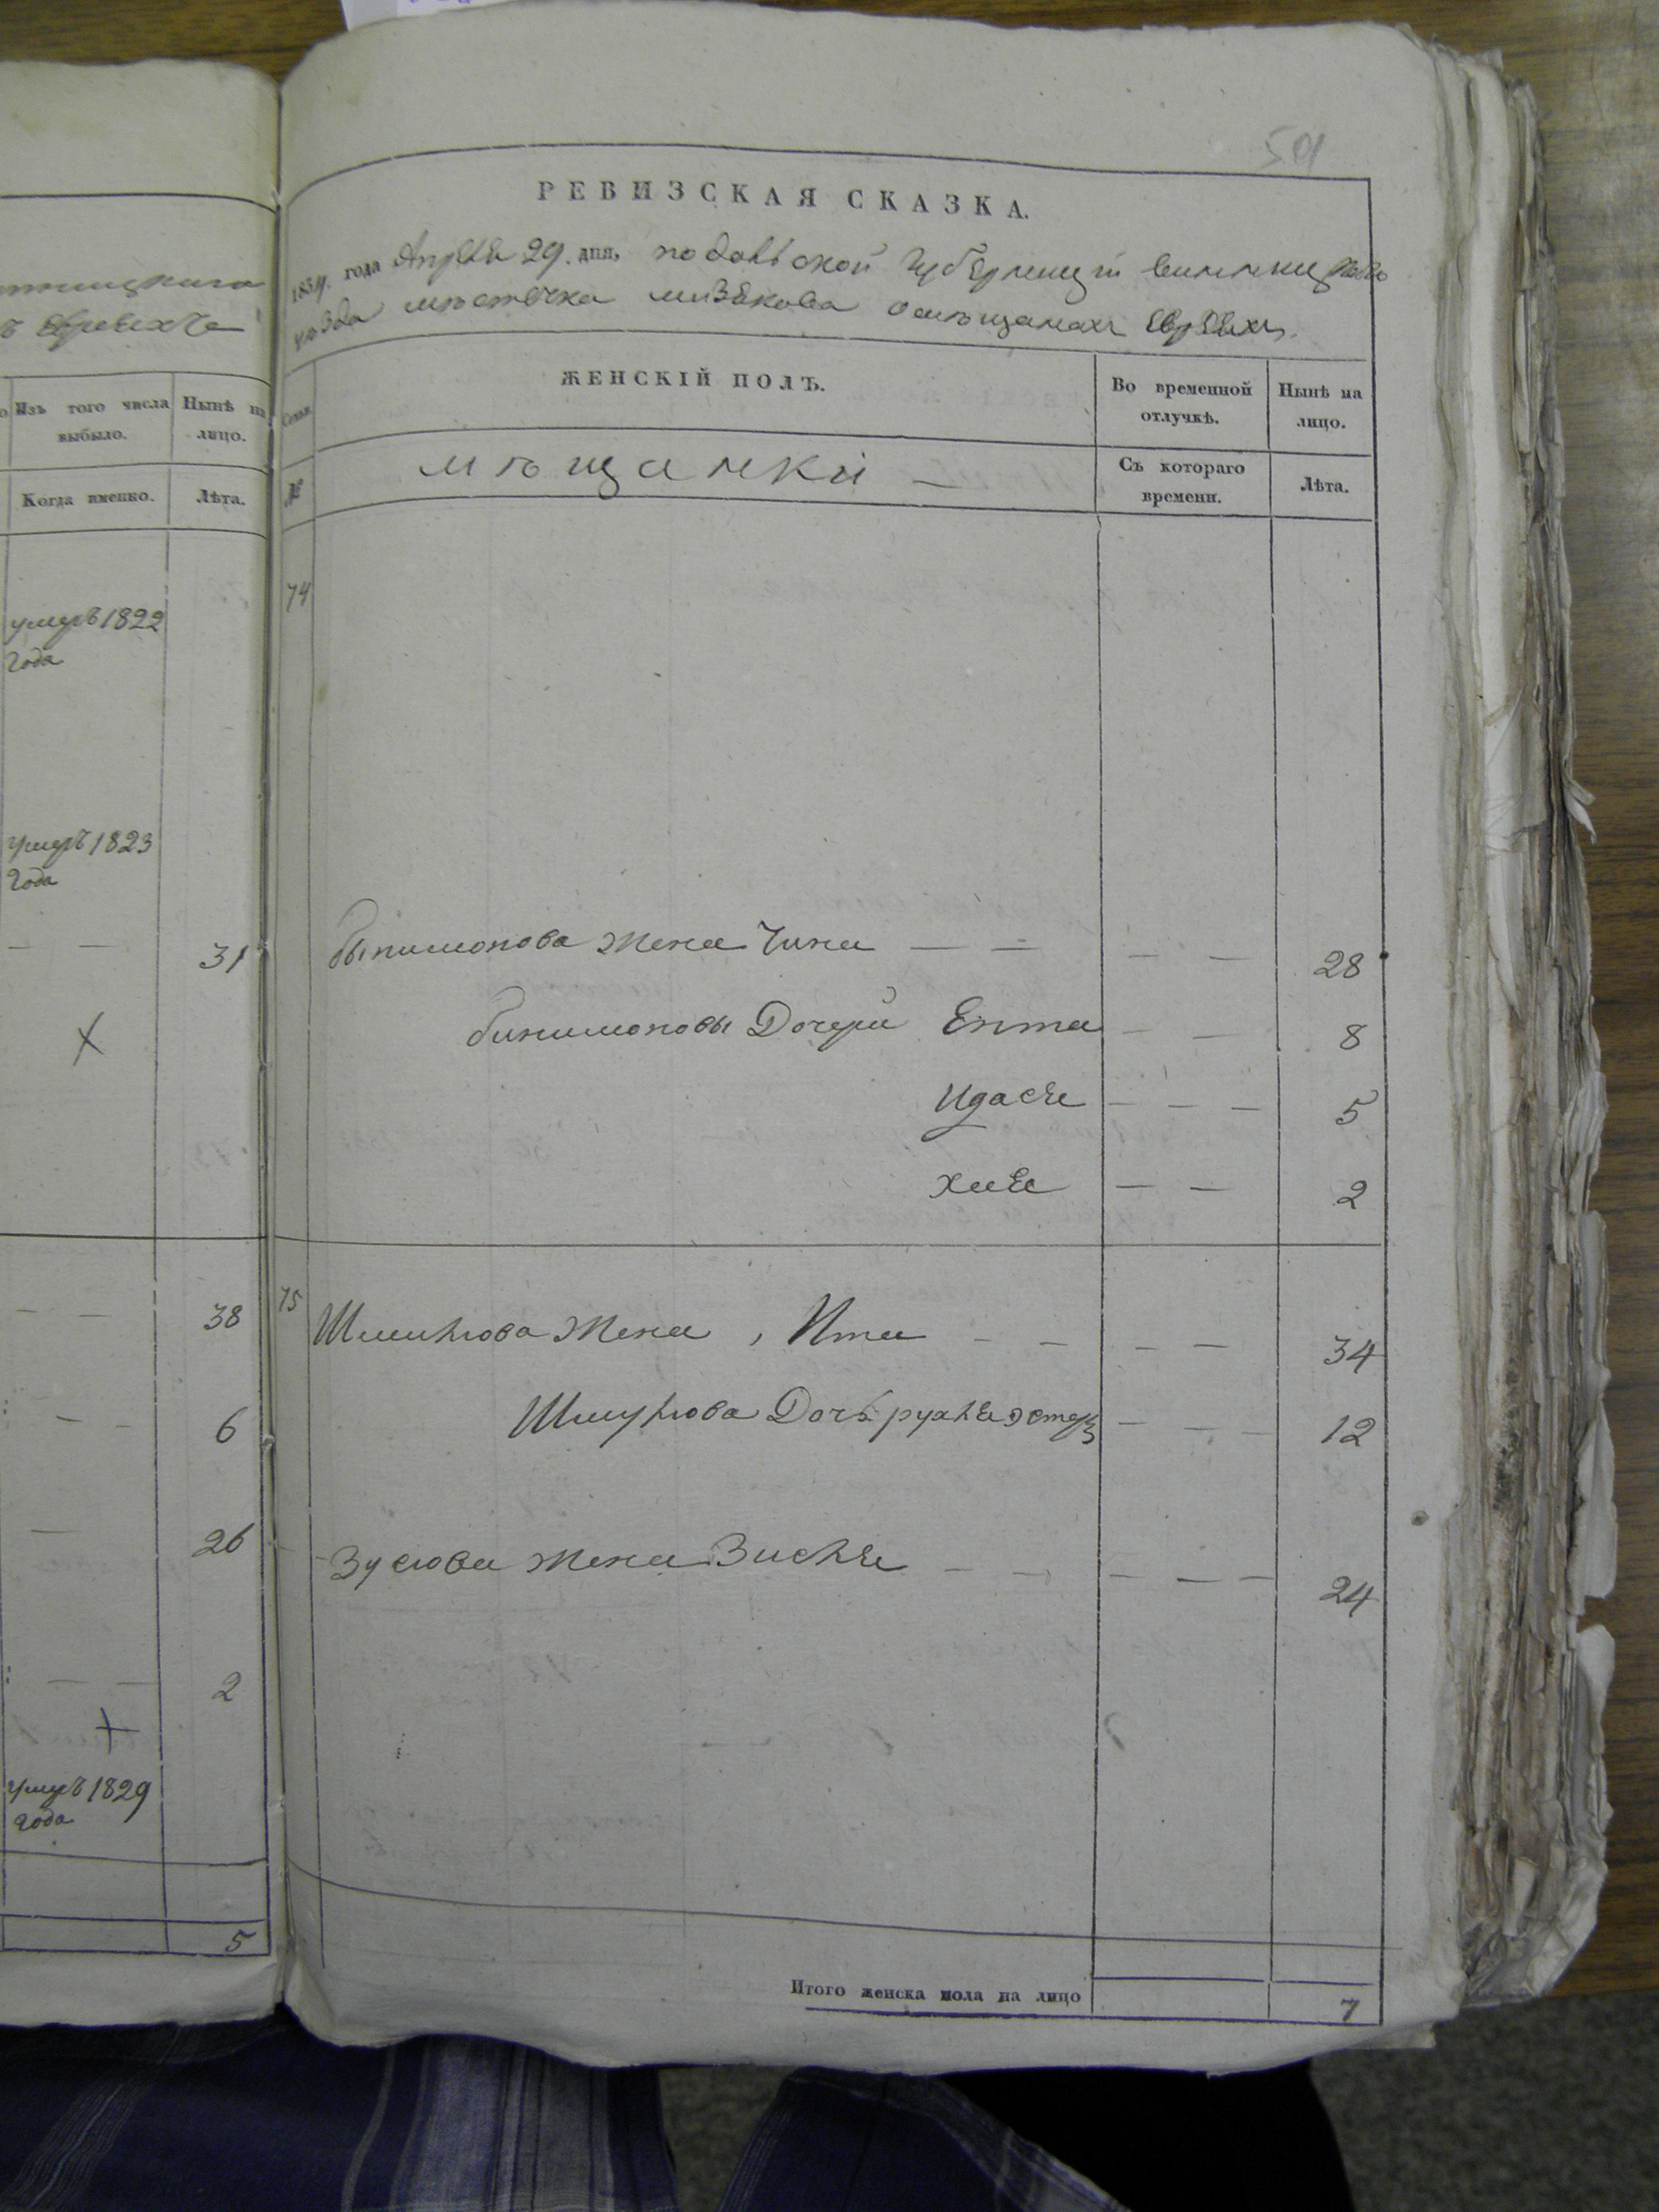 59
тницкаго
ъ Евреяхъ
Изъ того числа выбыло.
Нынѣ на лицо.
Когда именно.
Лѣта.
умеръ 1822
года
умеръ 1823
года
— — 31
X
— — 38
— — 6
— 26
— — 2
умеръ 1829
года
5
РЕВИЗСКАЯ СКАЗКА.
1834. года Апреля 29. дня, подольской губернии винницкаго
уѣзда мѣстечка мизякова о мѣщанахъ Евреяхъ.
Семьи.
ЖЕНСКІЙ ПОЛЪ.
Во временной отлучкѣ.
Нынѣ на лицо.
№
мѣщанки —
Съ котораго времени.
Лѣта.
74
жена — — — — 28
Дочери Ента — — 8
Идася — — — 5
Хая — — 2
75
жена, Ита — — — — 34
Дочь — — — 12
Зусова жена Зисля — — — — — 24
Итого женска пола на лицо
7